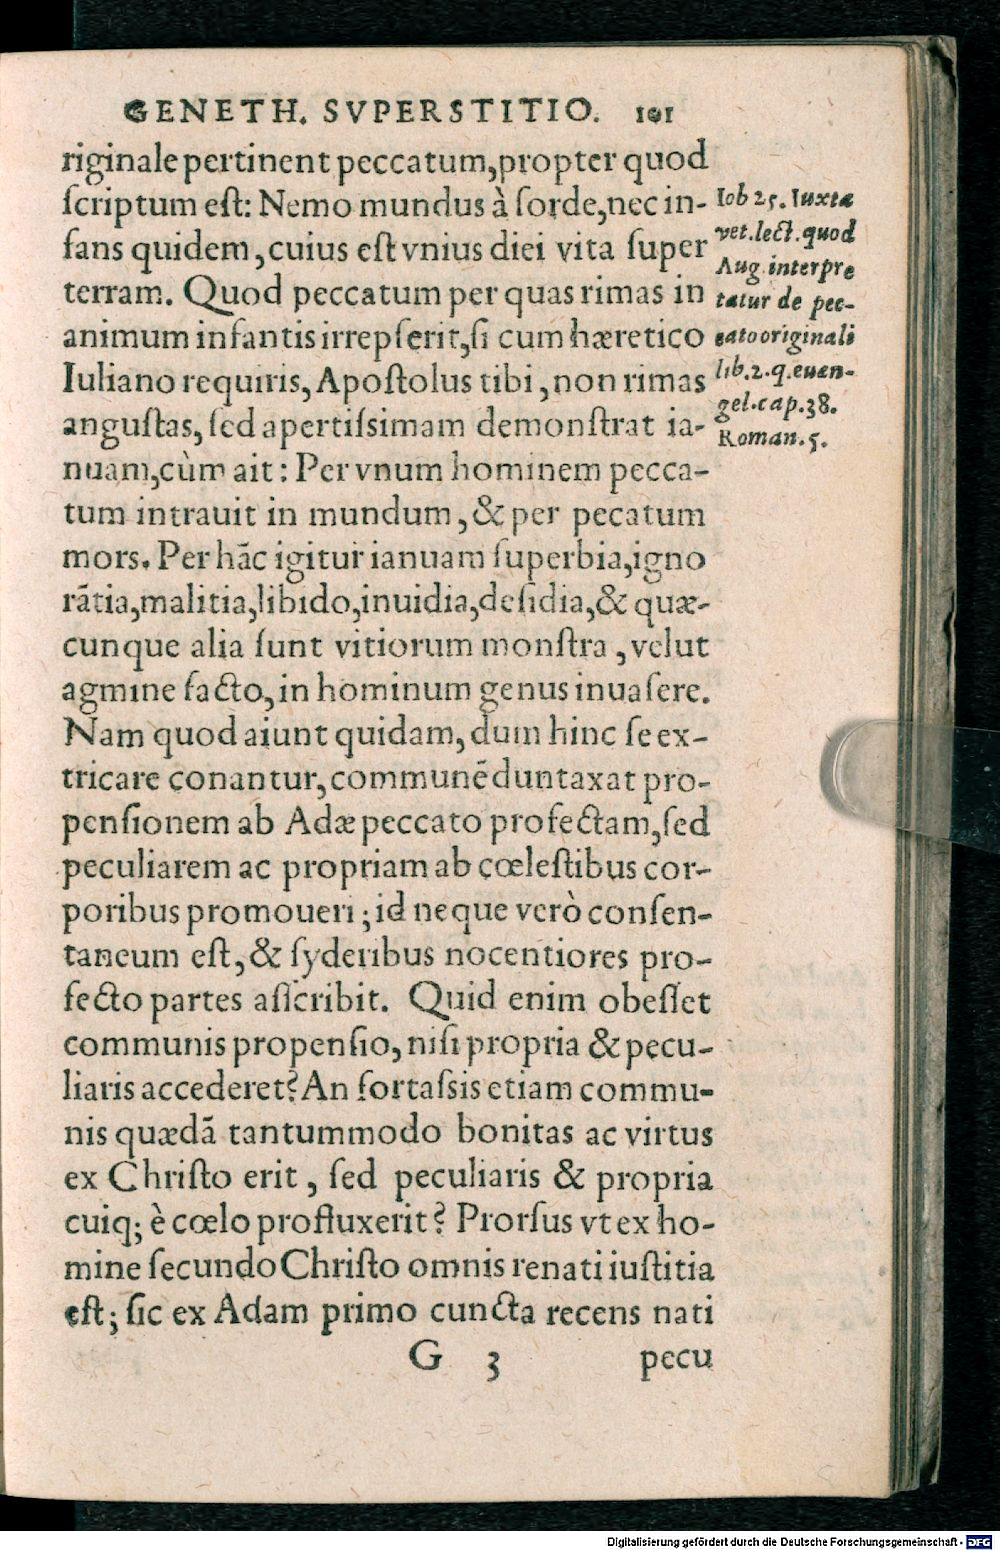 GENETH. SVPERSTITIO. 101
riginale pertinent peccatum, propter quod
ſcriptum eſt: Nemo mundus à ſorde, nec in-
fans quidem, cuius eſt vnius diei vita ſuper
terram. Quod peccatum per quas rimas in
animum infantis irrepſerit, ſi cum hæretico
Iuliano requiris, Apoſtolus tibi, non rimas
anguſtas, ſed apertiſsimam demonſtrat ia-
nuam, cùm ait: Per vnum hominem pecca-
tum intrauit in mundum, & per pecatum
mors. Per hāc igitur ianuam ſuperbia, igno
rātia, malitia, libido, inuidia, deſidia, & quæ-
cunque alia ſunt vitiorum monſtra, velut
agmine facto, in hominum genus inuaſere.
Nam quod aiunt quidam, dum hinc ſe ex-
tricare conantur, communē duntaxat pro-
penſionem ab Adæ peccato profectam, ſed
peculiarem ac propriam ab cœleſtibus cor-
poribus promoueri; id neque verò conſen-
taneum eſt, & ſyderibus nocentiores pro-
fecto partes aſſcribit. Quid enim obeſſet
communis propenſio, niſi propria & pecu-
liaris accederet? An fortaſsis etiam commu-
nis quædā tantummodo bonitas ac virtus
ex Chriſto erit, ſed peculiaris & propria
cuiq; è cœlo profluxerit? Prorſus vt ex ho-
mine ſecundo Chriſto omnis renati iuſtitia
eſt; ſic ex Adam primo cuncta recens nati
G 3 pecu
Iob 25. Iuxta
vet. lect. quod
Aug. interpre
tatur de pec-
cato originali
lib. 2. q. euan-
gel. cap. 38.
Roman. 5.
Digitalisierung gefördert durch die Deutsche Forschungsgemeinschaft - DFG